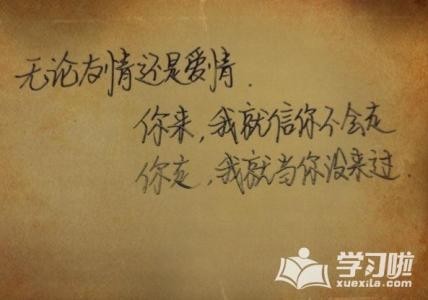 无论友情还是爱情.
你来,我就信你不会走
你走,我就当你没来过.
学习啦
xuexila.com